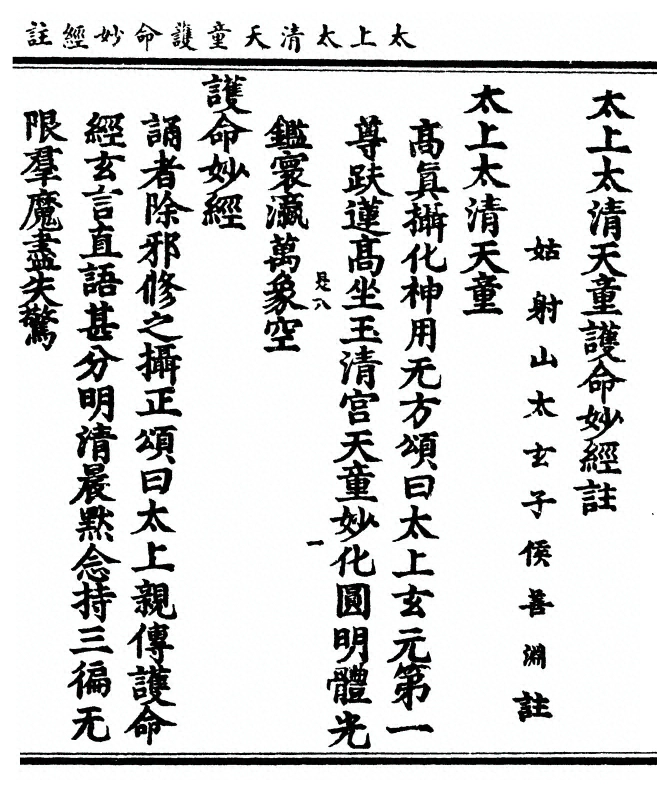 太上太清天童護命妙經註
太上太清天童護命妙經註
姑射山太玄子侯善淵註
太上太清天童
高眞攝化神用无方頌曰太上玄元第一
尊趺蓮髙坐玉清宮天童妙化圓明體光
鑑寰瀛萬象空
是八
一
護命妙經
誦者除邪修之攝正頌曰太上親傳護命
經玄言直語甚分明清晨默念持三徧无
限羣魔盡失驚